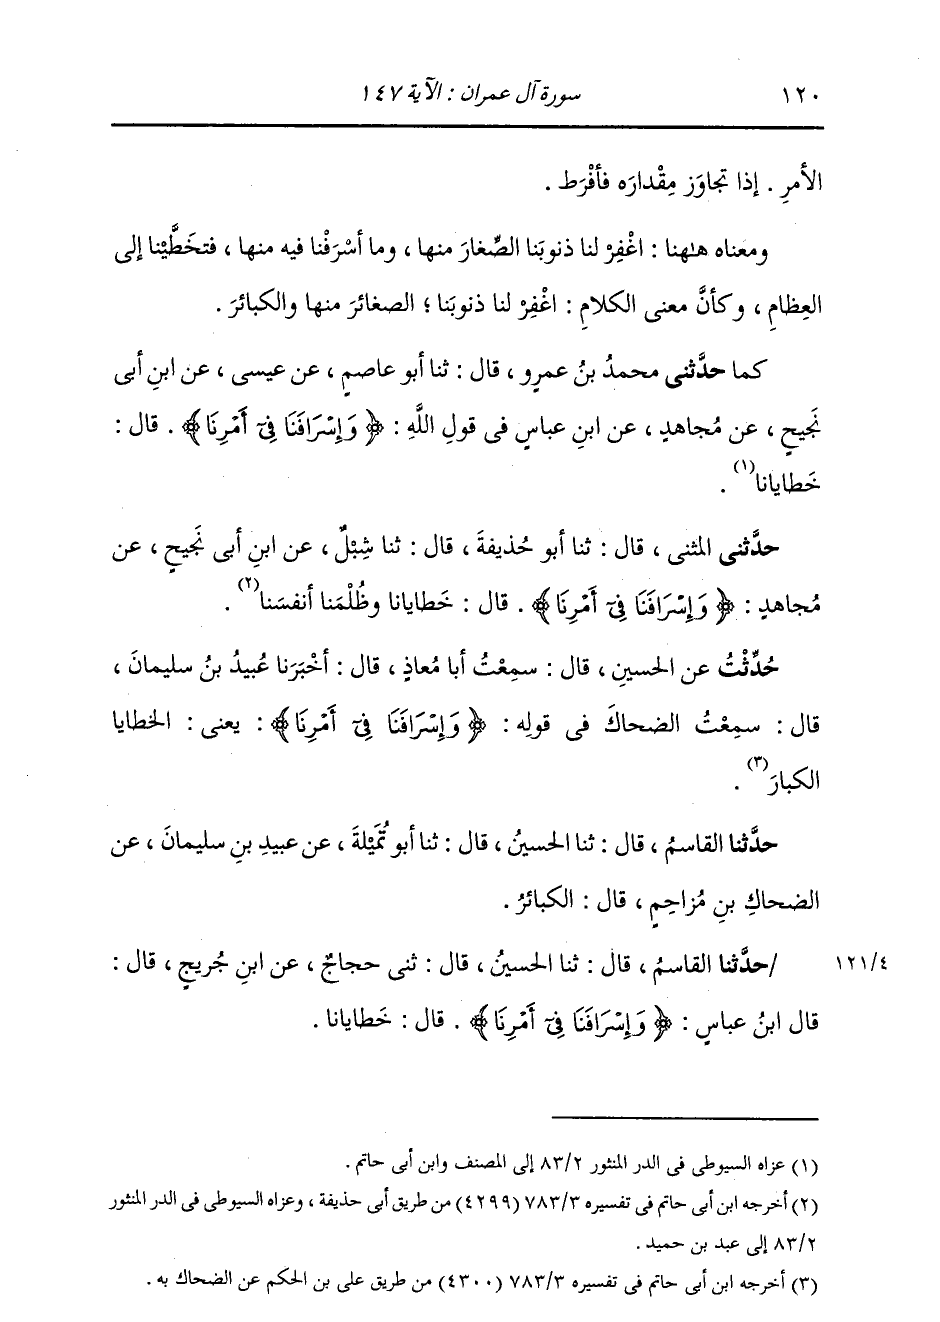 ١٢٠ سورة آل عمران : الآية ١٤٧
الأمرِ . إذا تجاوَز مِقْدارَه فأفْرَط .
ومعناه هٰهنا : اغْفِرْ لنا ذنوبَنا الصِّغارَ منها ، وما أسْرَفْنا فيه منها ، فتخَطَّيْنا إلى
العِظامِ ، وكأنَّ معنى الكلامِ : اغْفِرْ لنا ذنوبَنا ؛ الصغائرَ منها والكبائرَ .
كما حدَّثنى محمدُ بنُ عمرٍو ، قال : ثنا أبو عاصمٍ ، عن عيسى ، عن ابنِ أبى
نَجيحٍ ، عن مُجاهدٍ ، عن ابنِ عباسٍ فى قولِ اللَّهِ : ﴿ وَإِسْرَافَنَا فِىٓ أَمْرِنَا ﴾ . قال :
خَطايانا(١) .
حدَّثنى المثنى ، قال : ثنا أبو حُذيفةَ ، قال : ثنا شِبْلٌ ، عن ابنِ أبى نَجيحٍ ، عن
مُجاهدٍ : ﴿ وَإِسْرَافَنَا فِىٓ أَمْرِنَا ﴾ . قال : خَطايانا وظُلْمَنا أنفسَنا(٢) .
حُدِّثْتُ عن الحسينِ ، قال : سمِعْتُ أبا مُعاذٍ ، قال : أخْبَرَنا عُبيدُ بنُ سليمانَ ،
قال : سمِعْتُ الضحاكَ فى قولِه : ﴿ وَإِسْرَافَنَا فِىٓ أَمْرِنَا ﴾ : يعنى : الخطايا
الكبارَ(٣) .
حدَّثنا القاسمُ ، قال : ثنا الحسينُ ، قال : ثنا أبو تُمَيْلةَ ، عن عبيدِ بنِ سليمانَ ، عن
الضحاكِ بنِ مُزاحِمٍ ، قال : الكبائرُ .
٤/١٢١ /حدَّثنا القاسمُ ، قال : ثنا الحسينُ ، قال : ثنى حجاجٌ ، عن ابنِ جُريجٍ ، قال :
قال ابنُ عباسٍ : ﴿ وَإِسْرَافَنَا فِىٓ أَمْرِنَا ﴾ . قال : خَطايانا .
(١) عزاه السيوطى فى الدر المنثور ٨٣/٢ إلى المصنف وابن أبى حاتم .
(٢) أخرجه ابن أبى حاتم فى تفسيره ٧٨٣/٣ (٤٢٩٩) من طريق أبى حذيفة ، وعزاه السيوطى فى الدر المنثور
٨٣/٢ إلى عبد بن حميد .
(٣) أخرجه ابن أبى حاتم فى تفسيره ٧٨٣/٣ (٤٣٠٠) من طريق على بن الحكم عن الضحاك به .